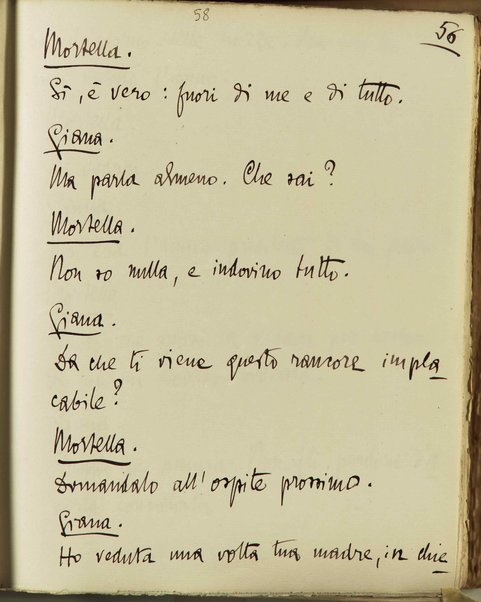 58
56
Mortella.
Sì, è vero: fuori di me e di tutto.
Giana.
Ma parla almeno. Che sai?
Mortella.
Non so nulla, e indovino tutto.
Giana.
Da che ti viene questo rancore impla
cabile?
Mortella.
Domandalo all'ospite prossimo.
Giana.
Ho veduta una volta tua madre, in chie